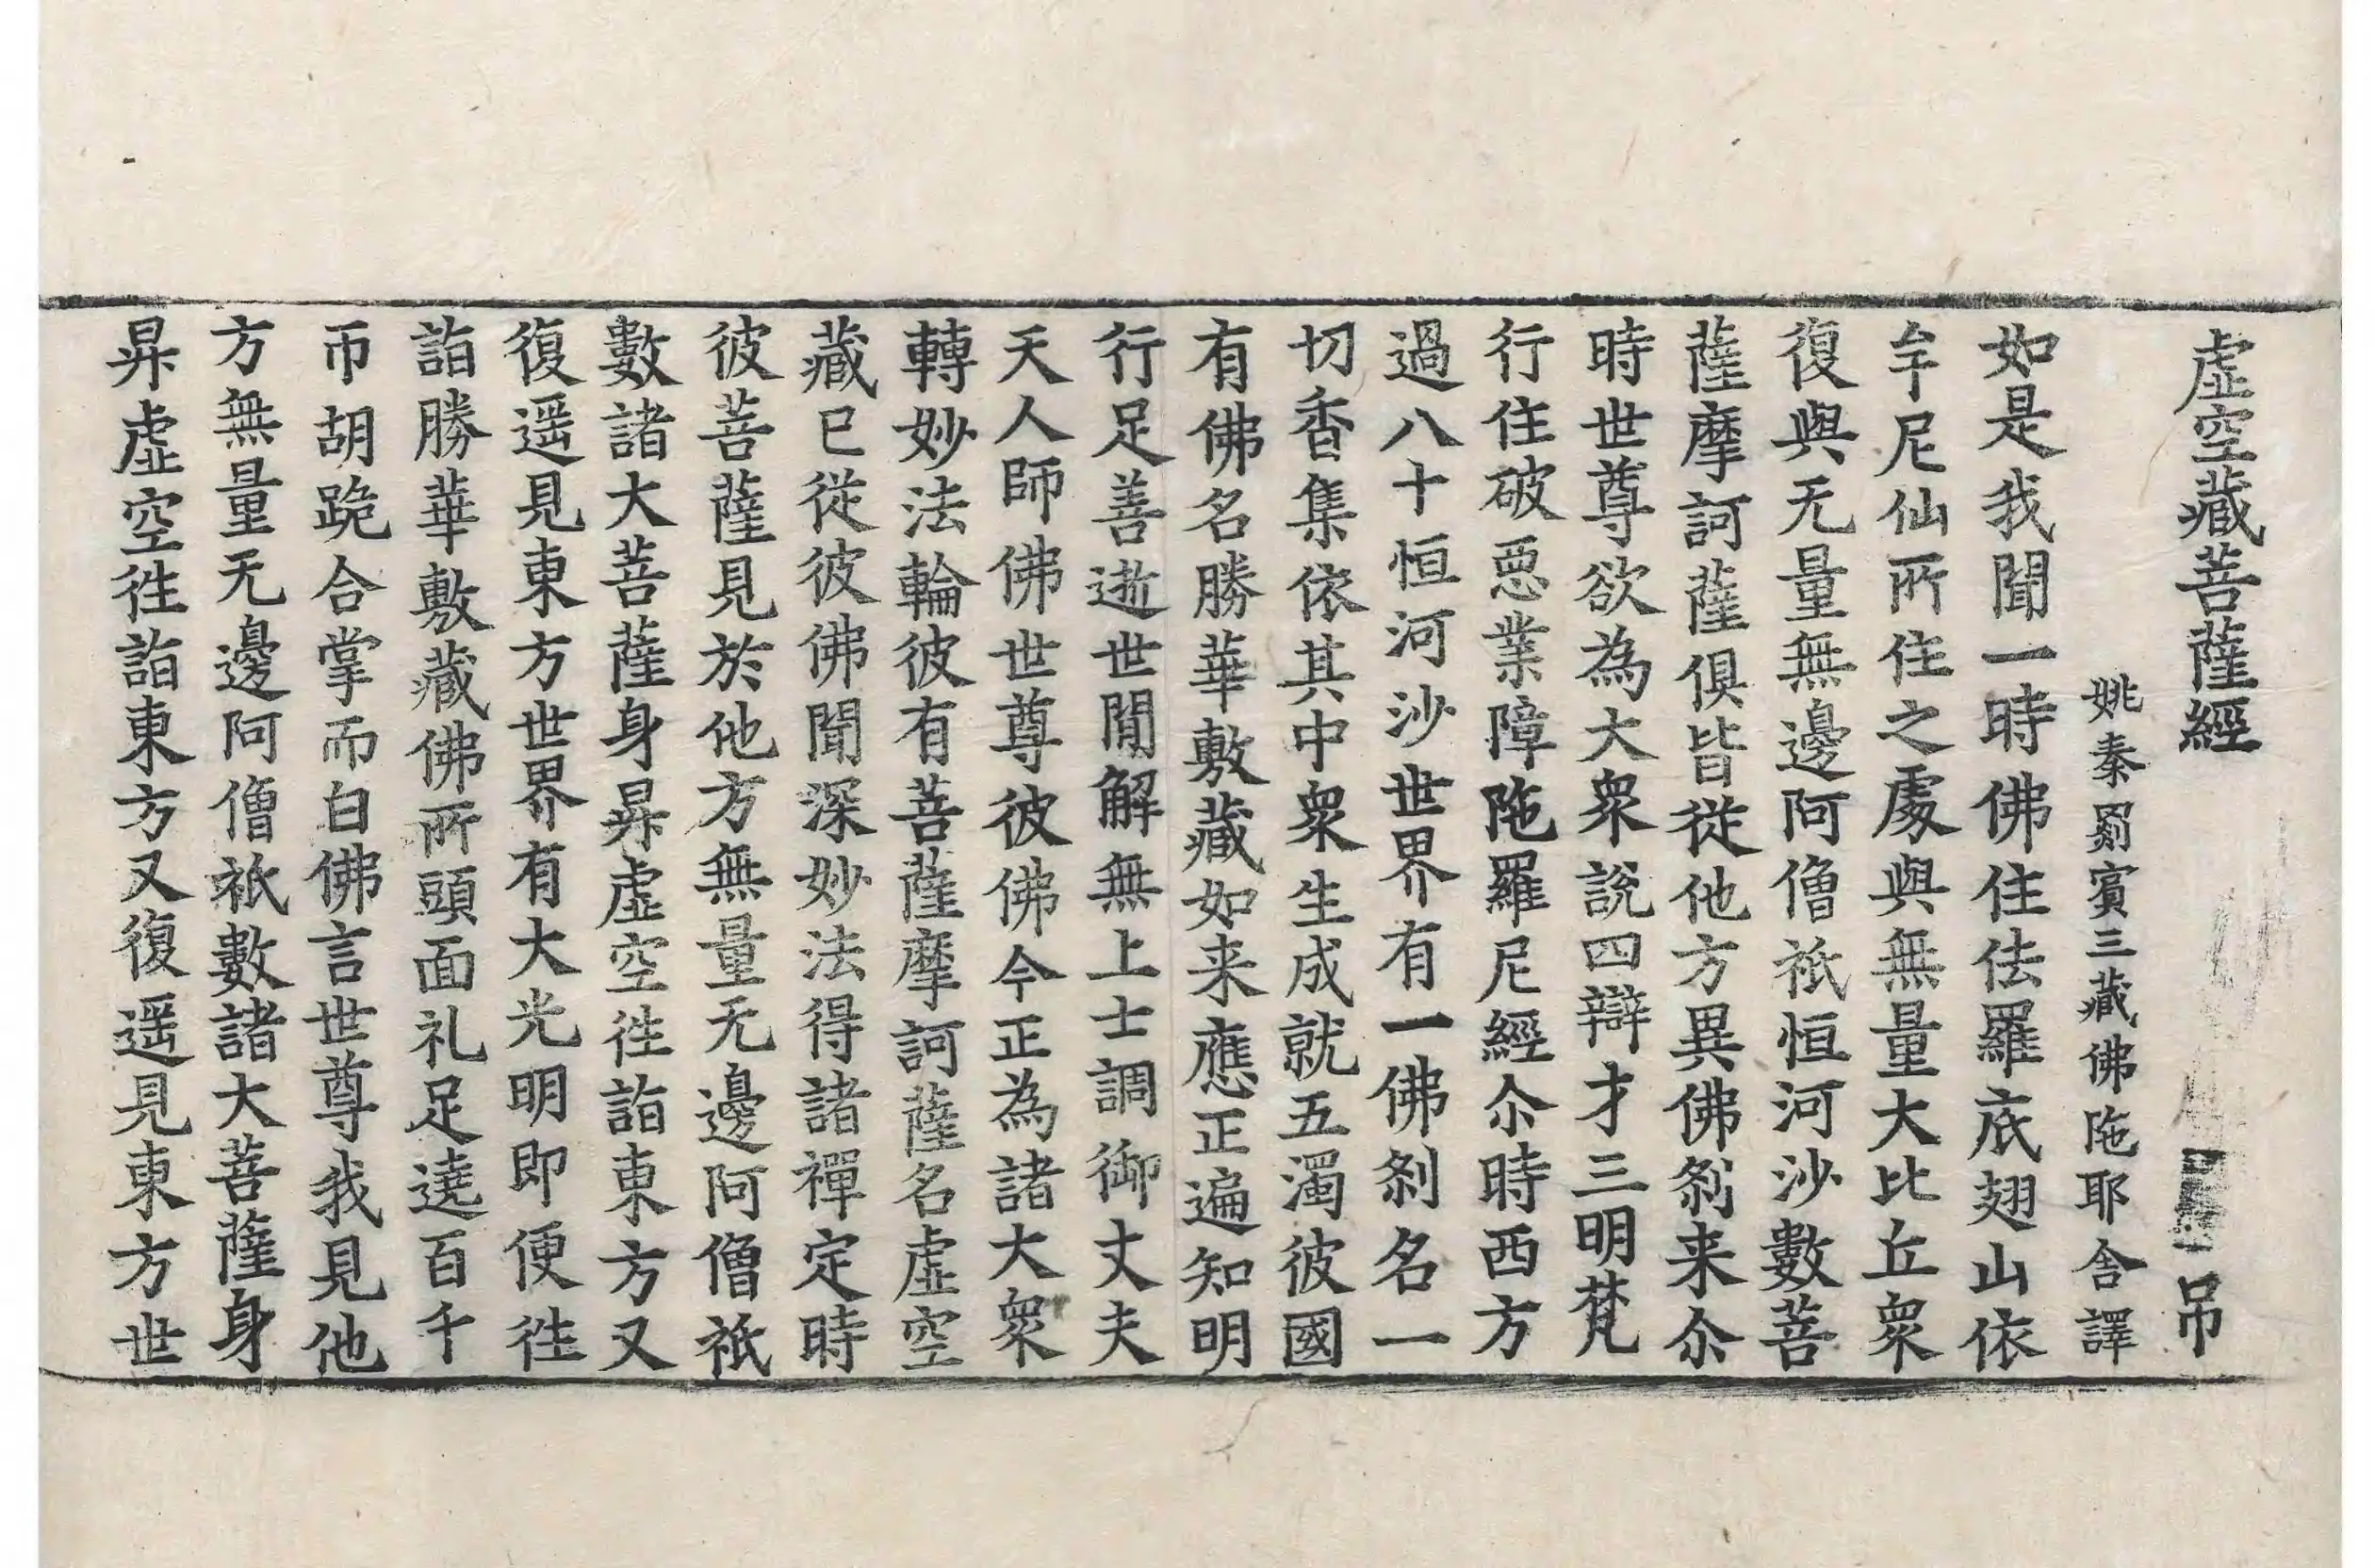 虛空藏菩薩經 吊
姚秦罽賓三藏佛陁耶舍譯
如是我聞一時佛住佉羅底翅山依
牟尼仙所住之處與無量大比丘衆
復與无量無邊阿僧祇恒河沙數菩
薩摩訶薩俱皆從他方異佛刹来尒
時世尊欲為大衆說四辯才三明梵
行住破惡業障陁羅尼經尒時西方
過八十恒河沙世界有一佛刹名一
切香集依其中衆生成就五濁彼國
有佛名勝華敷藏如来應正遍知明
行足善逝世間解無上士調御丈夫
天人師佛世尊彼佛今正為諸大衆
轉妙法輪彼有菩薩摩訶薩名虛空
藏已從彼佛聞深妙法得諸禪定時
彼菩薩見於他方無量无邊阿僧祇
數諸大菩薩身昇虛空徃詣東方又
復遥見東方世界有大光明即便徃
詣勝華敷藏佛所頭面礼足遶百千
帀胡跪合掌而白佛言世尊我見他
方無量无邊阿僧祇數諸大菩薩身
昇虛空徃詣東方又復遥見東方世